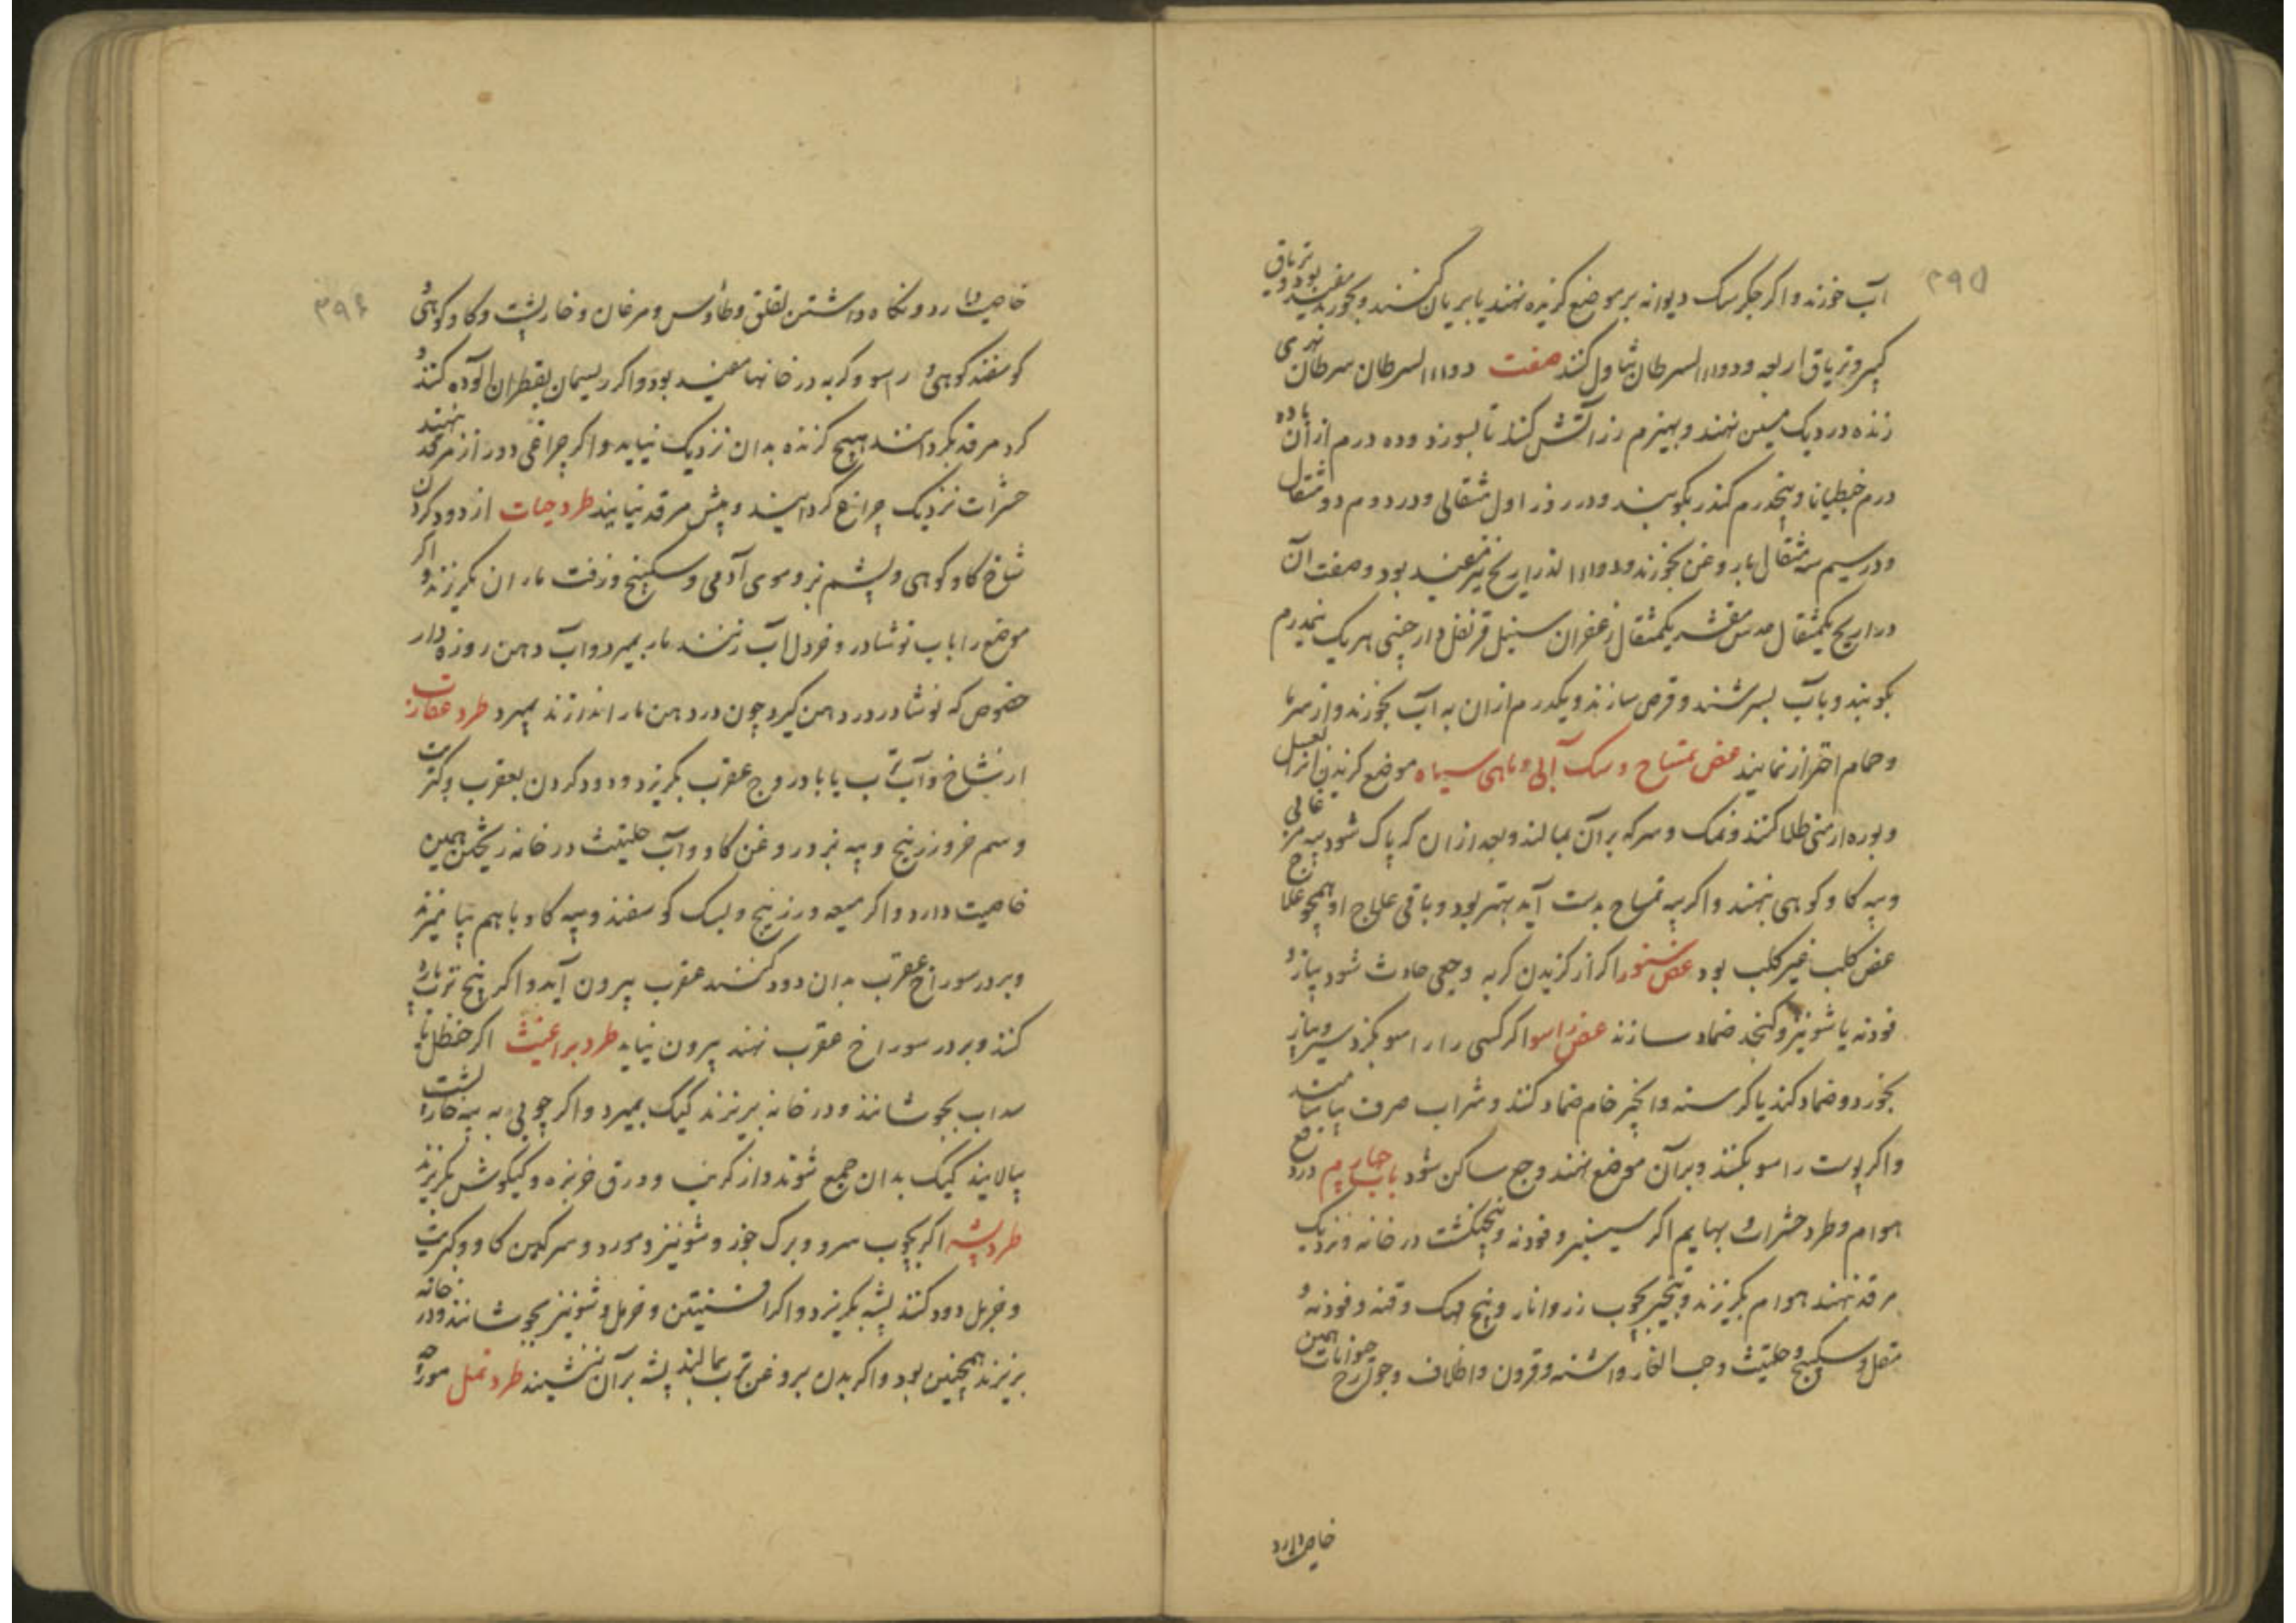 ۳۹۵
آب خورند و اکر جکر سک دیوانه بر موضع کزیده نهند یا بریان کنند و بخورند مفید بود و تریاق
کبیر و تریاق اربعه و دواء السرطان تناول کنند صفت دواء السرطان سرطان نهری
زنده در دیک مسین نهند و بهیزم رز آتش کنند تا بسوزد و ده درم از آن باده
درم جنطیانا و پنجدرم کندر بکوبند و در روز اول مثقالی و در دوم دو مثقال
و در سیم سه مثقال با روغن بخورند و دواء الذراریح نیز مفید بود و صفت آن
ذراریح یکمثقال عدس مقشر یکمثقال زعفران سنبل قرنفل دارچینی هر یک نیمدرم
بکوبند و باب بسرشند و قرص سازند و یکدرم از آن به آب بخورند و از سرما
و حمام احتراز نمایند عض تمساح و سک آبی و ماهی سیاه موضع کزیدن انرا بعسل
و بوره ارمنی طلا کنند و نمک و سرکه برآن بمالند و بعد از ان که پاک شود پیه مرغابی
و پیه کاو کوهی نهند و اکر پیه تمساح بدست آید بهتر بود و باقی علاج او همچو علاج
عض کلب غیر کلب بود عض سنور اکر از کزیدن کربه وجعی حادث شود پیاز و
فودنه یا شونیز و کنجد ضماد سازند عض راسو اکر کسی را راسو بکزد سیر و پیاز
بخورد و ضماد کند یا کرسنه و انجیر خام ضماد کنند و شراب صرف بیاشامند
و اکر پوست راسو بکنند و برآن موضع نهند وجع ساکن شود باب چهارم در دفع
هوام و طرد حشرات و بهایم اکر سیسنبر و فودنه و پنجنکشت در خانه و نزدیک
مرقد نهند هوام بکریزند و تبخیر بچوب رز و انار و بیخ مهک و قنه و فودنه و
مقل و سکبینج و حلتیث و حب الغار و اشنه و قرون و اظلاف و حوافر حیوانات همین
خاصیت دارد
۳۹۶
خاصیت دارد و نکاه داشتن لقلق و طاوس و مرغان و خارپشت و کاو کوهی و
کوسفند کوهی و راسو و کربه در خانها مفید بود و اکر ریسمان بقطران آلوده کنند و
کرد مرقد بکردانند هیچ کزنده بدان نزدیک نیاید و اکر چراغی دور از مرقد نهند
حشرات نزدیک چراغ کرد آیند و پیش مرقد نیایند طرد حیات از دود کردن
شاخ کاو کوهی و پشم بز و موی آدمی و سکبینج و زفت ماران بکریزند و اکر
موضع را باب نوشادر و خردل آب زنند مار بمیرد و آب دهن روزه دار
خصوص که نوشادر در دهن کیرد چون در دهن مار اندازند بمیرد طرد عقارب
از شاخ و آب ترب یا بادروج عقرب بکریزد و دود کردن بعقرب و کبریت
و سم خر و زرنیخ و پیه بز در روغن کاو و آب حلتیث در خانه ریختن همین
خاصیت دارد و اکر میعه و زرنیخ و پشک کوسفند و پیه کاو باهم بیامیزند
و بر در سوراخ عقرب بدان دود کنند عقرب بیرون آید و اکر بیخ ترب پاره
کنند و بر در سوراخ عقرب نهند بیرون نیاید طرد براغیث اکر حنظل یا
سداب بجوشانند و در خانه بریزند کیک بمیرد و اکر چوبی به پیه خارپشت
بیالایند کیک بدان جمع شوند و از کرنب و ورق خرزهره و کیکوش بکریزند
طرد پشه اکر بچوب سرو و برک جوز و شونیز و مورد و سرکین کاو و کبریت
و خردل دود کنند پشه بکریزد و اکر افسنتین و خردل و شونیز بجوشانند و در خانه
بریزند همچنین بود و اکر بدن بروغن ترب بمالند پشه برآن ننشیند طرد نمل